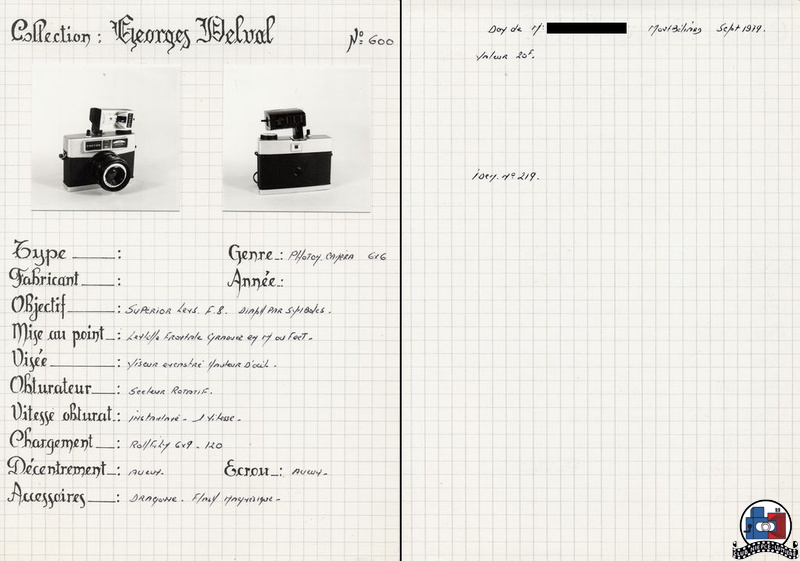 Collection : Georges Delval
No 600
Type :
Genre : Photog. Caméra 6x6
Fabricant :
Année :
Objectif : Superior Lens. F.8. Diaph par symboles.
Mise au point : Lentille Frontale Graduée en M ou Feet.
Visée : Viseur encastré Hauteur D'œil.
Obturateur : Secteur Rotatif.
Vitesse obturat : instantané - 1 Vitesse -
Chargement : Rollfilm 6x9 - 120
Décentrement : Aucun.
Ecrou : Aucun -
Accessoires : Dragonne. Flash Magnésique -
Don de Mr Sept 1979.
Valeur 20F.
iden. no 219.